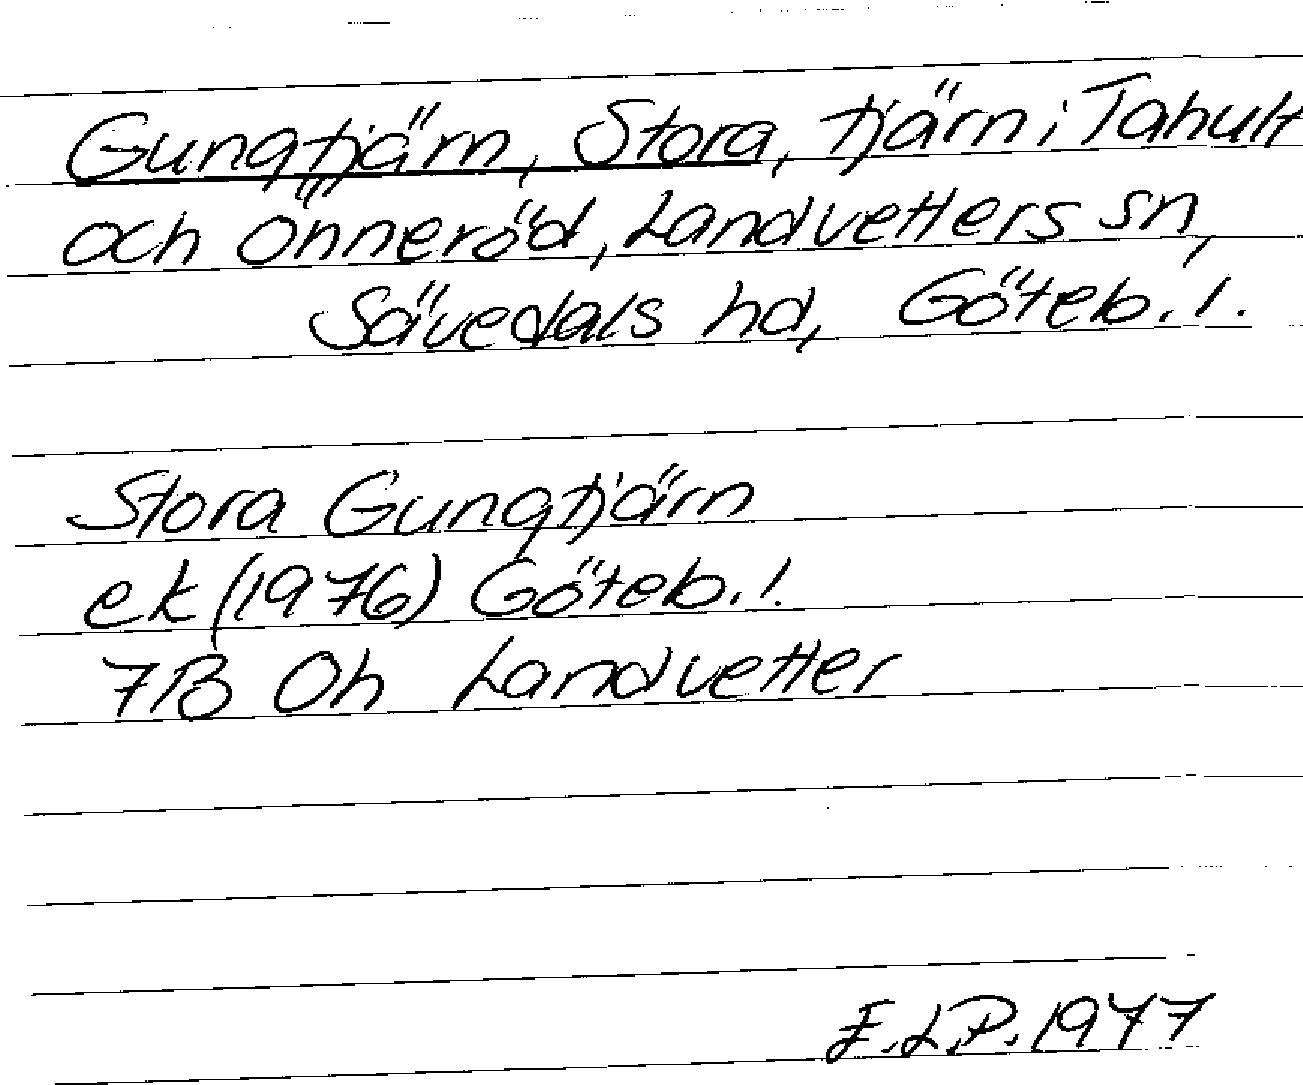 Gungtjärn, Stora, tjärn i Tahult
och Önneröd, Landvetters sn,
Sävedals hd, Göteb. l.
Stora Gungtjärn
ek (1976) Göteb. l.
7B Oh Landvetter
E.L.P. 1977